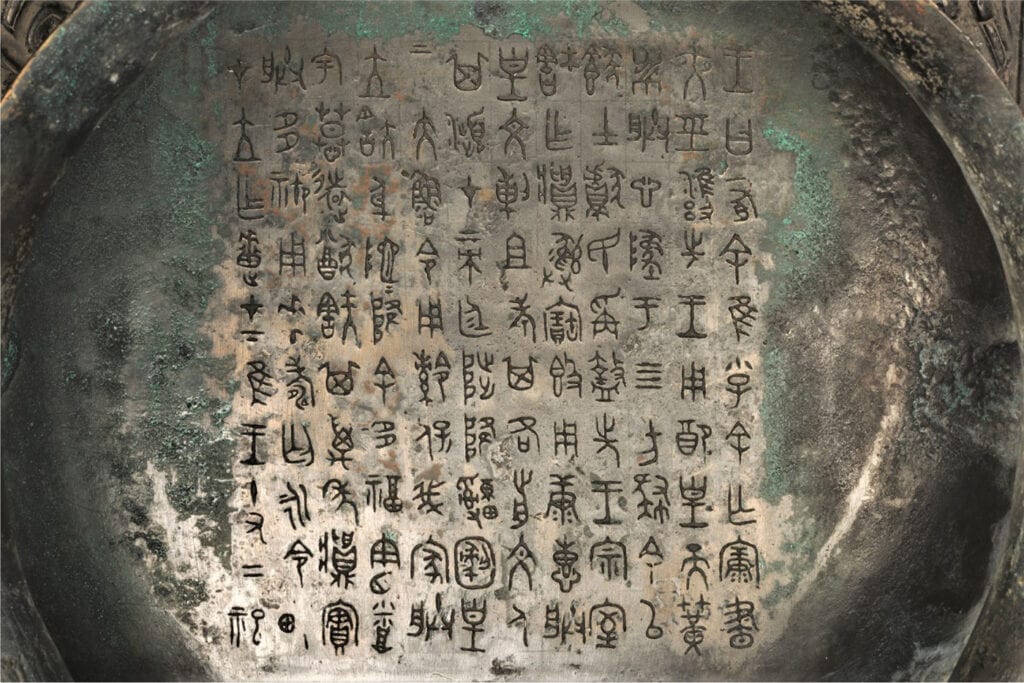 王曰有余隹小子余亡康晝
夜巠雝先王用配皇天黃
黹朕心墜于四方肆余以
餗士獻民爯盩先王宗室
㝬乍彝寶簋用康惠朕
皇文剌且考其各前文人
其瀕才帝廷陟降皇
帝大魯令用保我家朕
立㝬身阤阤降余多福憲烝
宇慕遠猷㝬其萬年實
朕多禦用壽匄永令畯
才立乍疐才下隹王十又二祀